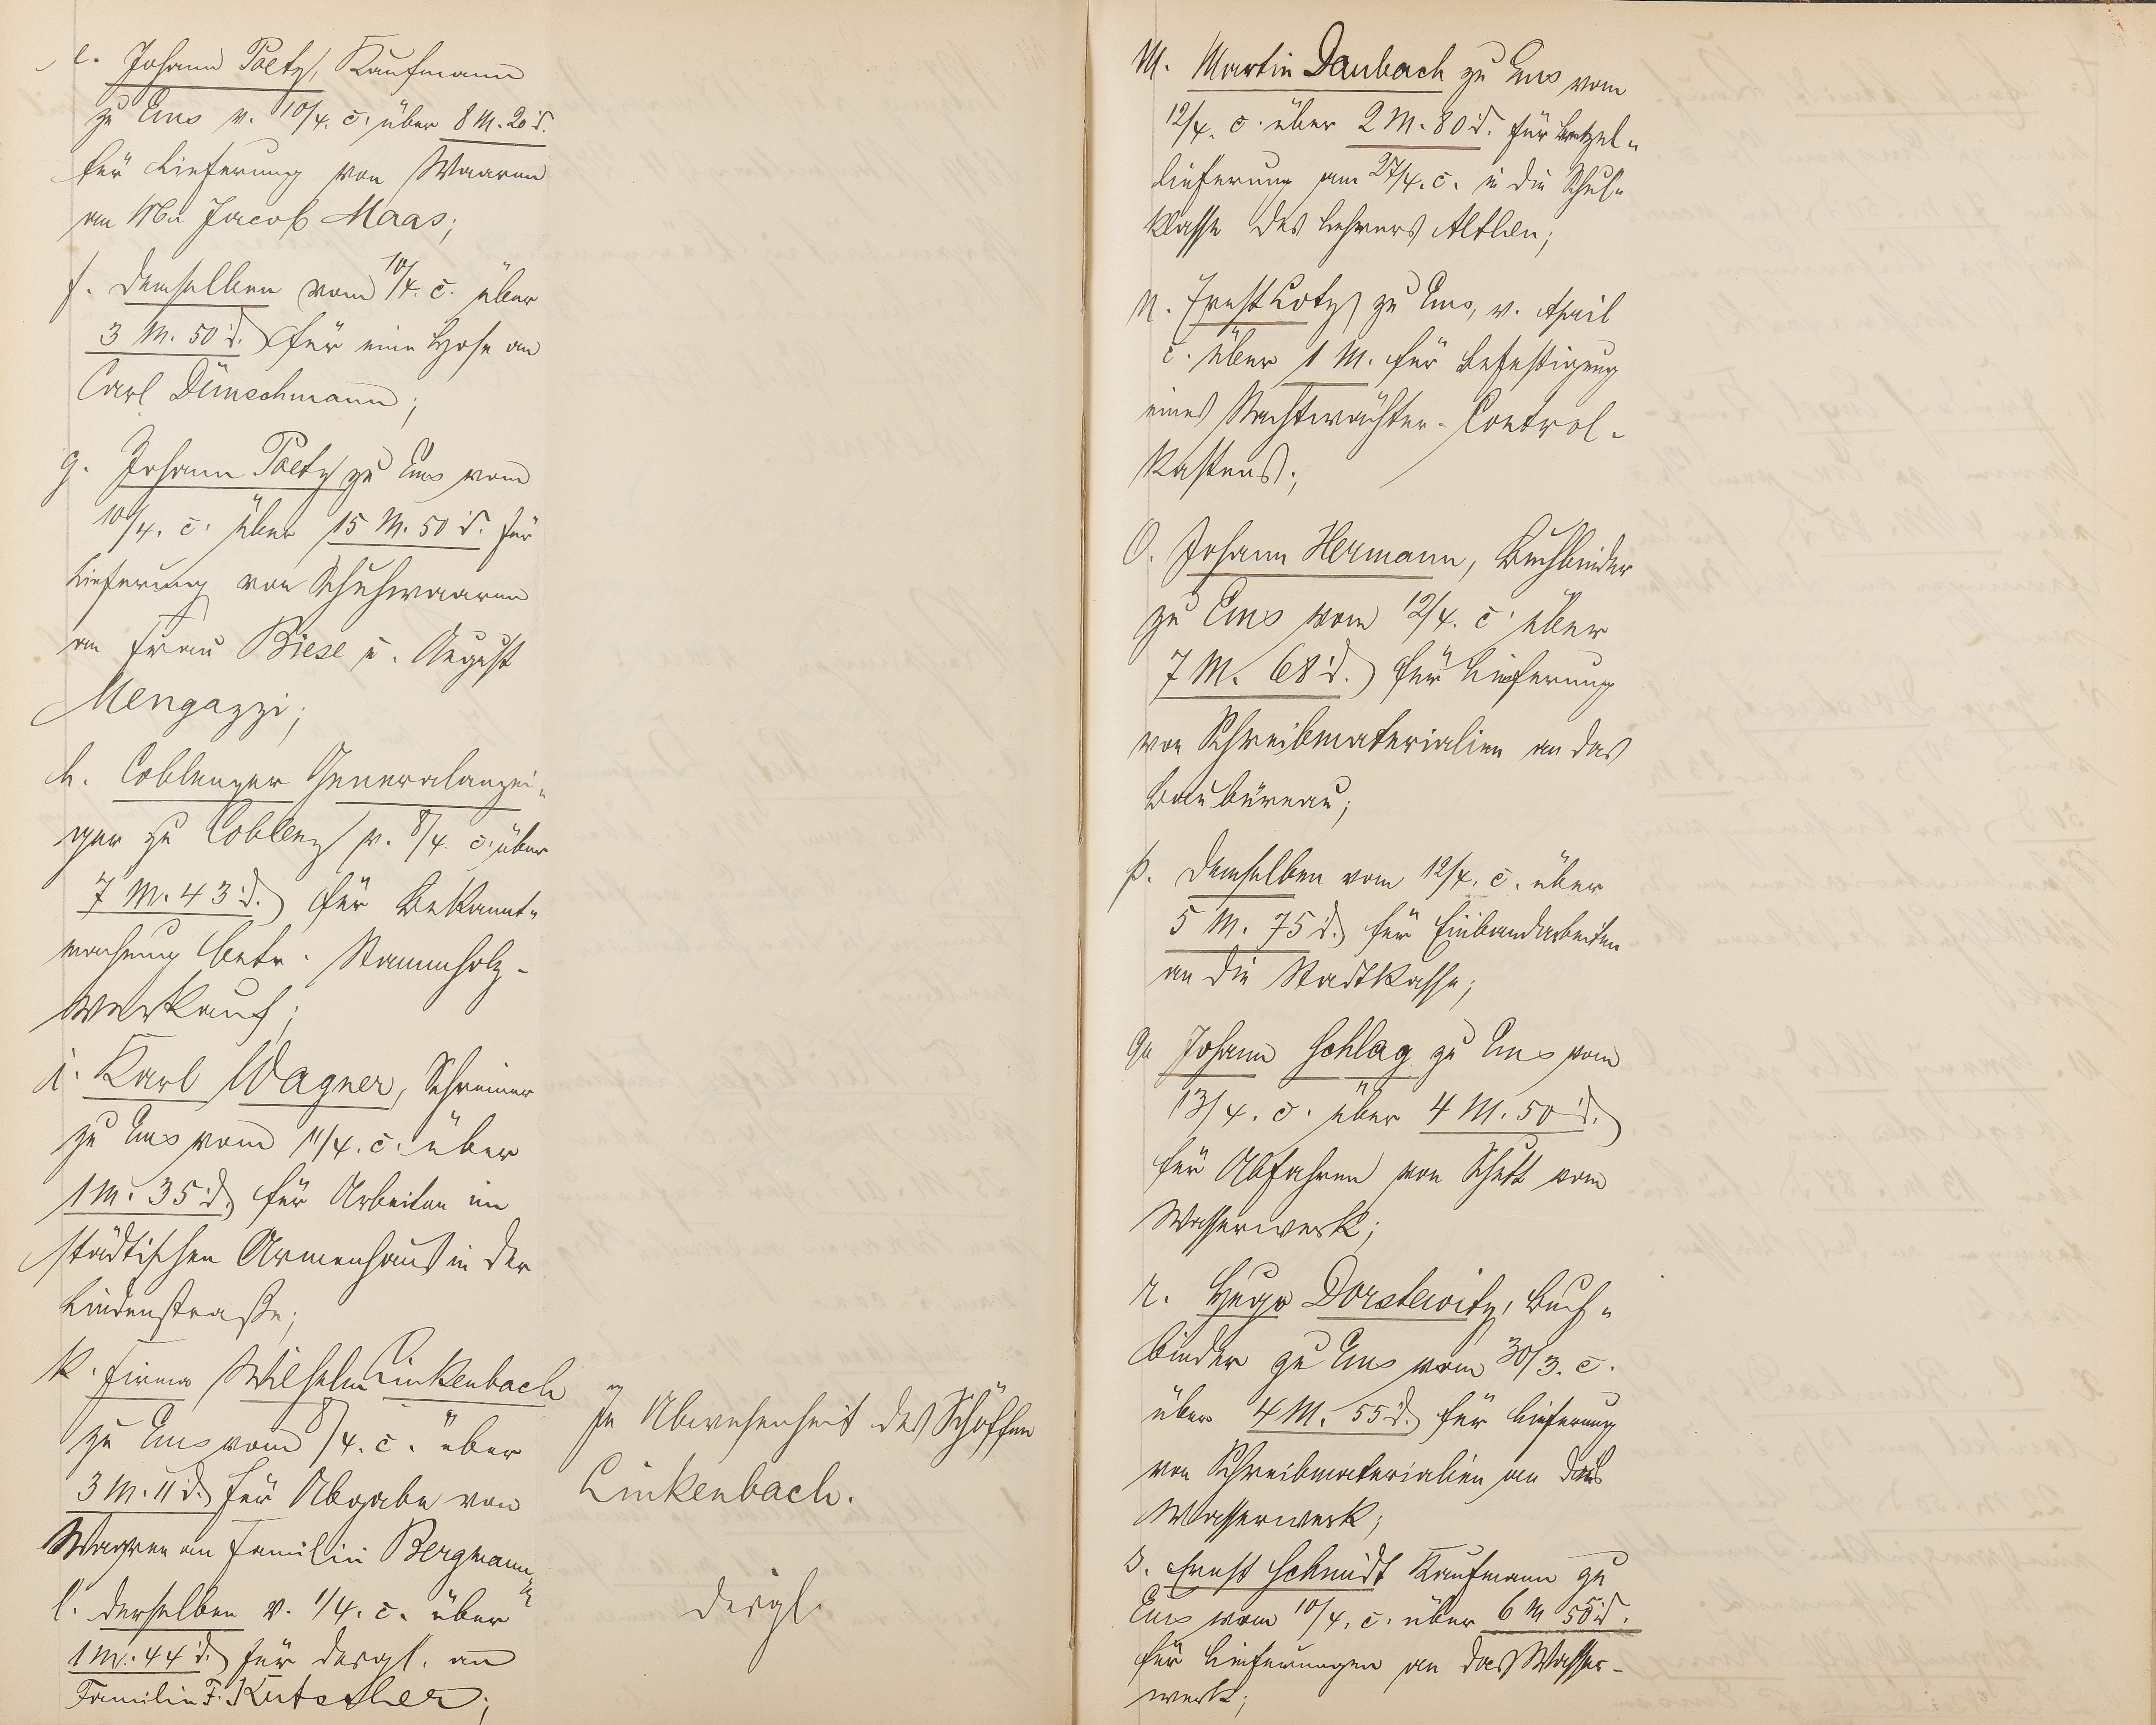 e. Johann Paetz, Kaufmann
zu Ems v. 10/4. c. über 8 M. 20 d.
für Lieferung von Waaren
an Ww Jacob Maas;
f. demselben vom 10/4. c. über
3 M. 50 d. für eine Hose an
Carl Dünschmann;
g. Johann Paetz zu Ems vom
10/4. c. über 15 M. 50 d. für
Lieferung von Schuhwaaren
an Frau Biese u. August
Mengazzi;
h. Coblenzer Generalanzei-
ger zu Coblenz v. 8/4. c. über
7 M. 43 d. für Bekannt-
machung betr. Stammholz-
verkauf;
i. Karl Wagner, Schreiner
zu Ems vom 11/4. c. über
1 M. 35 d. für Arbeiten im
städtischen Armenhaus in der
Lindenstraße;
k. Firma Wilhelm Linkenbach
zu Ems vom 8/4. c. über
3 M. 11 d. für Abgabe von
Waaren an Familie Bergmann;
l. derselben v. 1/4. c. über
1 M. 44 d. für desgl. an
Familie F. Kutscher;
In Abwesenheit des Schöffen
Linkenbach.
desgl.
M. Martin Daubach zu Ems vom
12/4. c. über 2 M. 80 d. für Bretzel-
lieferung am 27/4. c. in die Schul-
klasse des Lehrers Althen;
n. Ernst Lotz zu Ems, v. April
c. über 1 M. für Befestigung
eines Nachtwächter-Control-
kastens;
O. Johann Hermann, Buchbinder
zu Ems vom 12/4. c. über
7 M. 68 d. für Lieferung
von Schreibmaterialien an das
Baubüreau;
p. demselben vom 12/4. c. über
5 M. 75 d. für Einbandarbeiten
an die Stadtkasse;
q. Johann Schlag zu Ems vom
13/4. c. über 4 M. 50 d.
für Abfahren von Schutt vom
Wasserwerk;
r. Hugo Dorstewitz, Buch-
binder zu Ems vom 30/3. c.
über 4 M. 55 d. für Lieferung
von Schreibmaterialien an das
Wasserwerk;
s. Ernst Schmidt Kaufmann zu
Ems vom 10/4. c. über 6 M 55 d.
für Lieferungen an das Wasser-
werk;